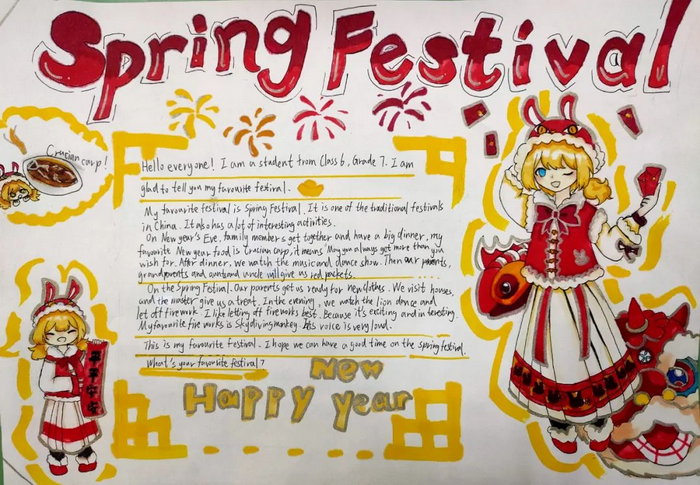 Spring Festival
Crucian carp!
Hello everyone! I am a student from Class 6, Grade 7. I am
glad to tell you my favourite festival.
My favourite festival is Spring Festival. It is one of the traditional festivals
in China. It also has a lot of interesting activities.
On New year's Eve, family members get together and have a big dinner, my
favorite New year food is Crucian carp, it means "May you always get more than you
wish for. After dinner, we watch the music and dance show. Then our parents,
grandparents and aunt and uncle will give us red pockets.
On the Spring Festival. Our parents get us ready for new clothes. We visit houses,
and the master give us a treat. In the evening, we watch the lion dance and
let off firework. I like letting off fireworks best. Because it's exciting and interesting.
My favourite fire works is skydiving monkey. It's voice is very loud.
This is my favourite festival. I hope we can have a good time on the spring festival.
What's your favourite festival?
New
Happy year